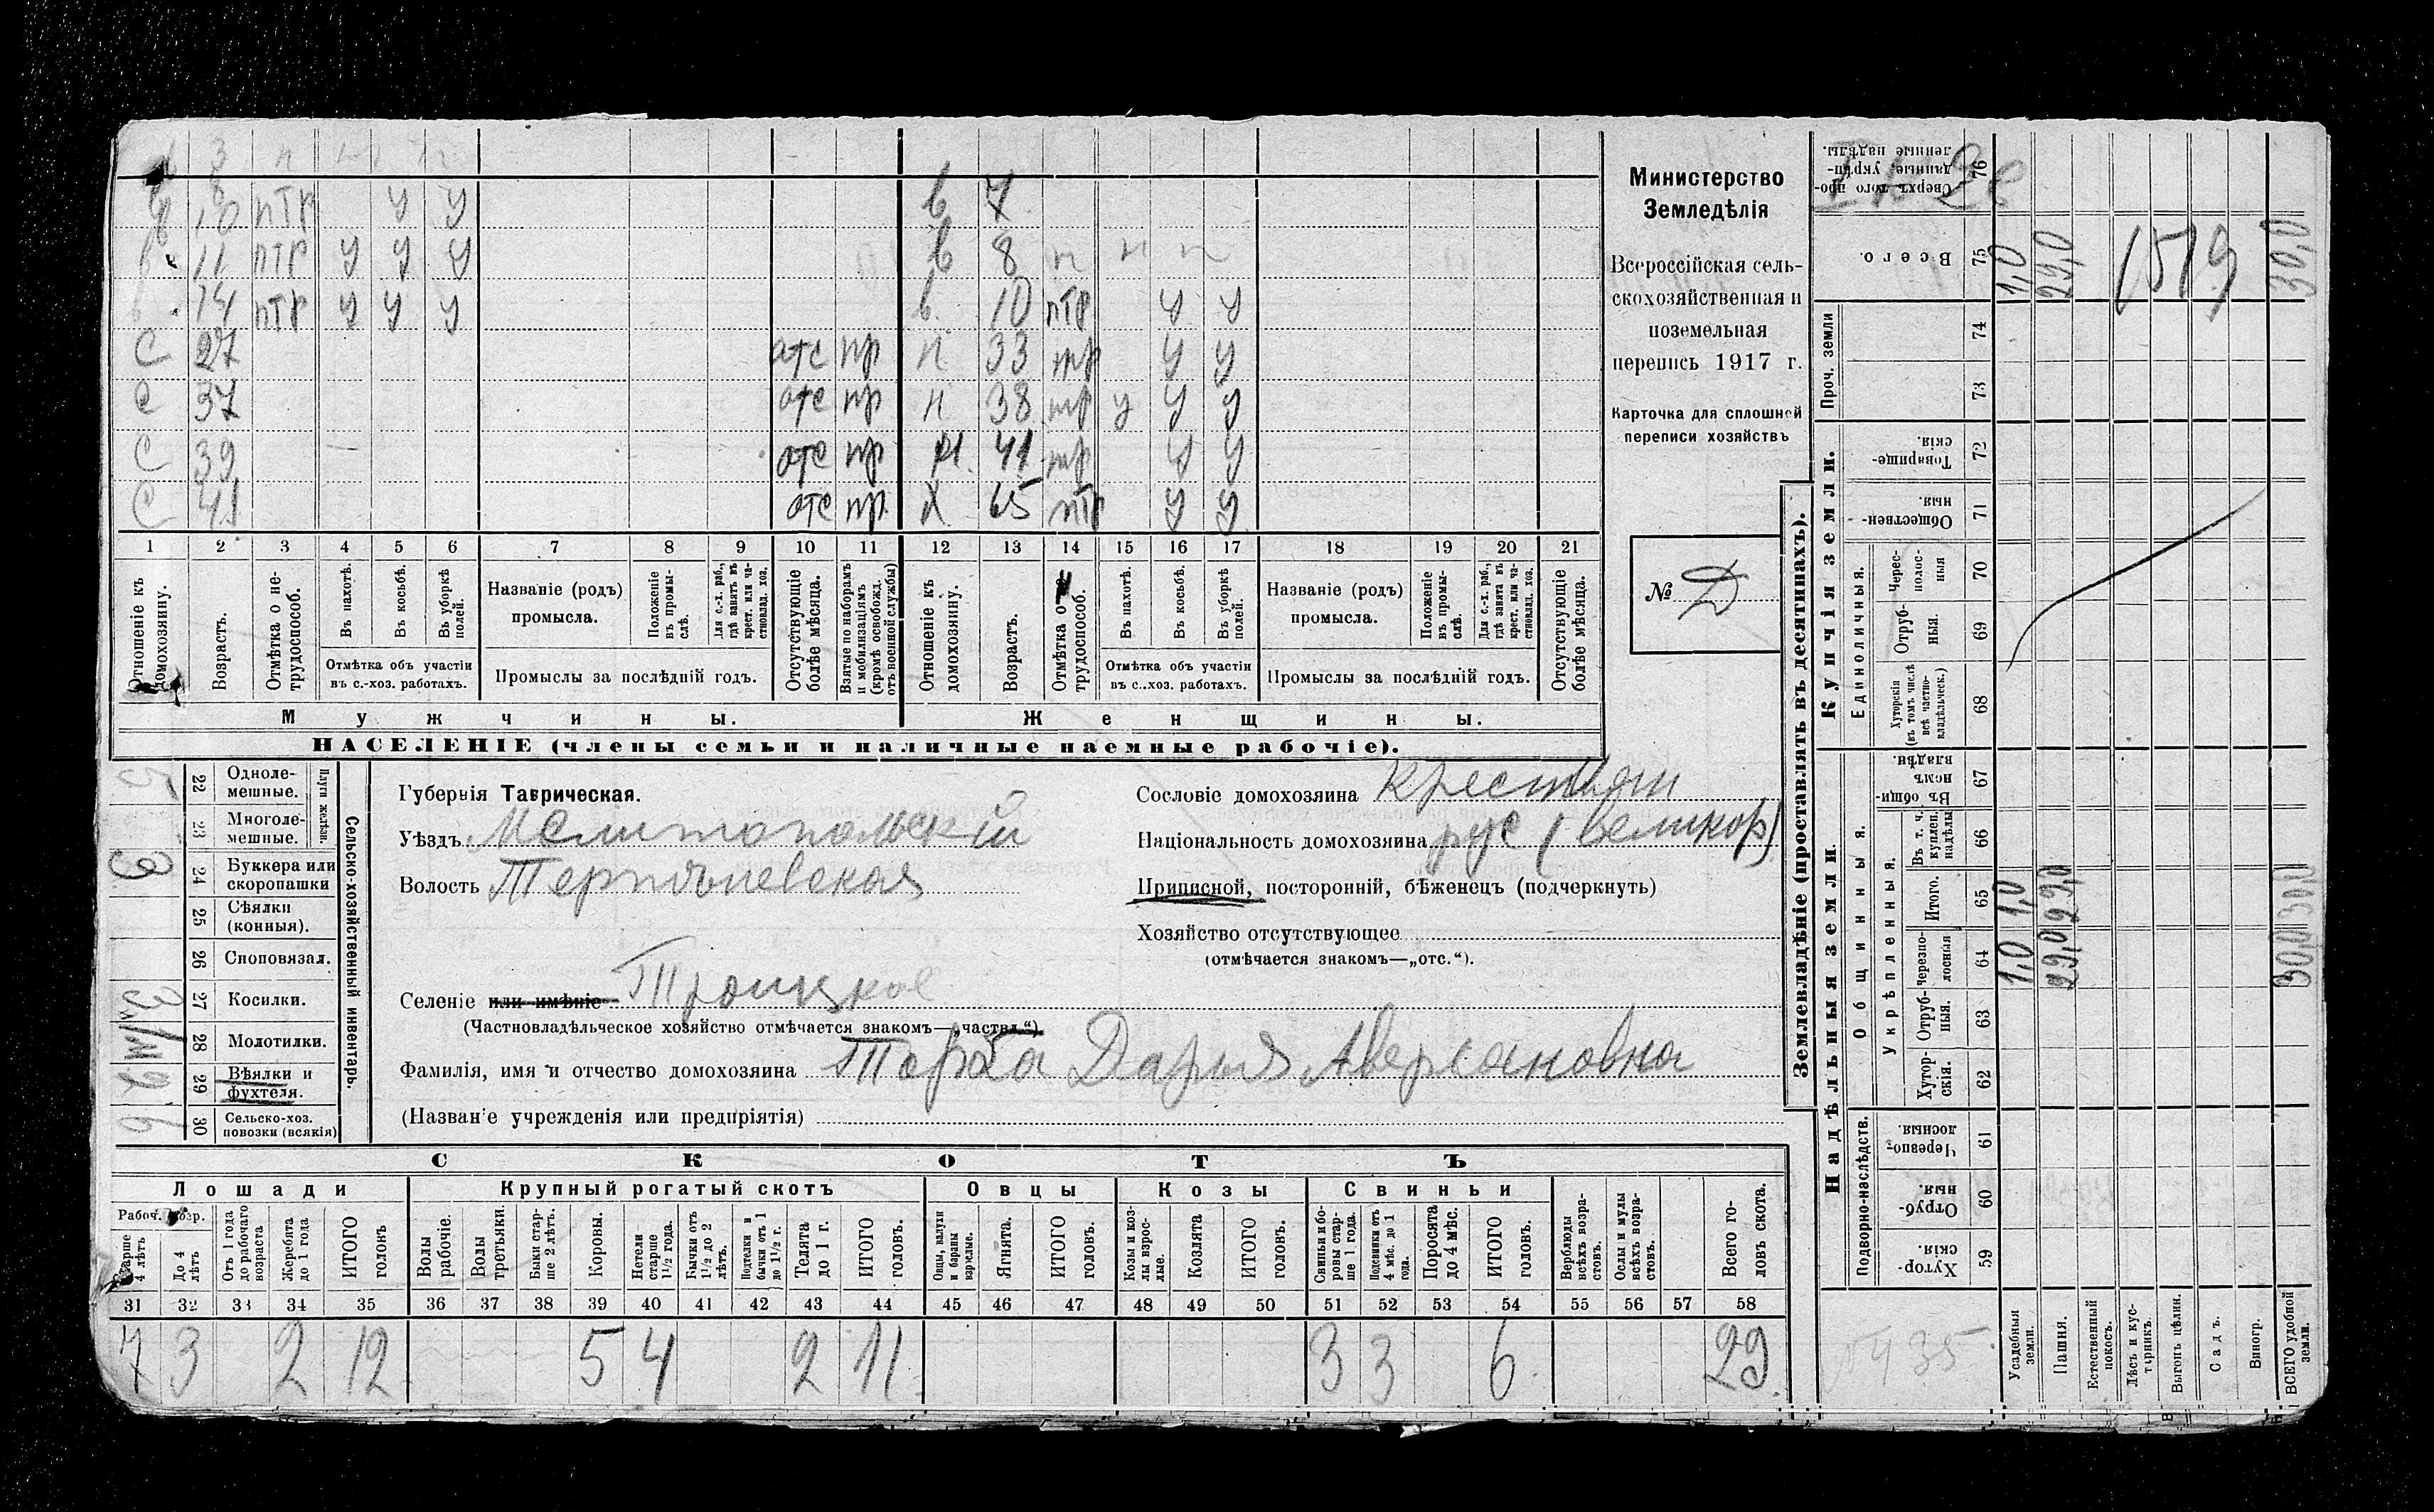 3 п
10 птр у у в 7
11 птр у у у в 8 п п п
в 14 птр у у у в 10 птр у у
С 27 отс пр н 33 тр у у
С 37 отс пр н 38 тр у у у
С 39 отс пр 41 тр у у
С 41 отс пр Х 65 птр у у
1 2 3 4 5 6 7 8 9 10 11 12 13 14 15 16 17 18 19 20 21
Отношеніе къ домохозяину.
Возрастъ.
Отмѣтка о не-
трудоспособ.
Въ пахотѣ.
Въ косьбѣ.
Въ уборкѣ полей.
Отмѣтка объ участіи
въ с.-хоз. работахъ.
Названіе (родъ)
промысла.
Положеніе въ промы-
слѣ.
Для с.-х. раб.,
гдѣ занятъ въ
крест. или ча-
стновлад. хоз.
Промыслы за послѣдній годъ.
Отсутствующіе
болѣе мѣсяца.
Взятые по наборамъ
и мобилизаціямъ
(кромѣ освобожд.
отъ военной службы)
Отношеніе къ
домохозяину.
Возрастъ.
Отмѣтка о
трудоспособ.
Въ пахотѣ.
Въ косьбѣ.
Въ уборкѣ
полей.
Отмѣтка объ участіи
въ с.-хоз. работахъ.
Названіе (родъ)
промысла.
Положеніе
въ промы-
слѣ.
Для с.-х. раб.,
гдѣ занята въ
крест. или ча-
стновлад. хоз.
Промыслы за послѣдній годъ.
Отсутствующіе
болѣе мѣсяца.
Мужчины.
Женщины.
НАСЕЛЕНІЕ (члены семьи и наличные наемные рабочіе).
Министерство
Земледѣлія
Всероссійская сель-
скохозяйственная и
поземельная
перепись 1917 г.
Карточка для сплошной
переписи хозяйствъ
№ Д
5 22 Одноле-
мешные.
23 Многоле-
мешные.
Плуги желѣзн.
3 24 Буккера или
скоропашки
25 Сѣялки
(конныя).
26 Сноповязал.
27 Косилки.
28 Молотилки.
29 Вѣялки и
фухтеля.
6 30 Сельско-хоз.
повозки (всякія)
Сельско-хозяйственный инвентарь.
Губернія Таврическая.
Уѣздъ Мелитопольскій
Волость Терпѣньевская
Селеніе или имѣніе Троицкое
(Частновладѣльческое хозяйство отмѣчается знакомъ—„частвл.“)
Фамилія, имя и отчество домохозяина Дарья
(Названіе учрежденія или предпріятія)
Сословіе домохозяина крестьян
Національность домохозяина рус (великор)
Приписной, посторонній, бѣженецъ (подчеркнуть)
Хозяйство отсутствующее
(отмѣчается знакомъ—„отс.“).
СКОТЪ
Лошади Крупный рогатый скотъ Овцы Козы Свиньи
Рабоч. возр.
Старше
4 лѣтъ
До 4
лѣтъ
Отъ 1 года
до рабочаго
возраста
Жеребята
до 1 года
ИТОГО
головъ
Волы
рабочіе.
Волы
третьяки.
Быки стар-
ше 2 лѣтъ.
Коровы.
Нетели
старше
1½ года.
Бычки отъ
1½ до 2
лѣтъ.
Подтелки и
бычки отъ 1
до 1½ г.
Телята
до 1 г.
ИТОГО
головъ.
Овцы, валухи
и бараны
взрослые.
Ягнята.
ИТОГО
головъ.
Козы и коз-
лы взрос-
лые.
Козлята
ИТОГО
головъ.
Свиньи и бо-
ровы стар-
ше 1 года.
Подсвинки отъ
4 мѣс. до 1
года.
Поросята
до 4 мѣс.
ИТОГО
головъ.
Верблюды
всѣхъ возра-
стовъ.
Ослы и мулы
всѣхъ возра-
стовъ.
Всего го-
ловъ скота.
31 32 33 34 35 36 37 38 39 40 41 42 43 44 45 46 47 48 49 50 51 52 53 54 55 56 57 58
7 3 2 12 5 4 2 11 3 3 6 29
Землевладѣніе (проставлять въ десятинахъ).
Купчія земли.
Надѣльныя земли.
Сверхъ того про-
данные укрѣп-
ленные надѣлы.
76
Всего.
75
1,0
29,0
1519
30,0
Проч. земли
74
73
Товарище-
скія.
72
Обществен-
ныя.
71
Единоличныя.
Черес-
полос-
ныя
70
Отруб-
ныя.
69
Хуторскія
(въ томъ числѣ
всѣ частно-
владѣльческ.)
68
Общинныя.
Въ общи-
номъ
владѣн.
67
Укрѣпленныя.
Въ т. ч.
куплен.
надѣлы
66
Итого.
65
1,0
29,0
30,0
черезпо-
лосныя
64
1,0
29,0
30,0
Отруб-
ныя.
63
Хутор-
скія.
62
Подворно-наслѣдств.
Черезпо-
лосныя.
61
Отруб-
ныя.
60
Хутор-
скія.
59
Усадебныя
земли.
Пашня.
Естественный
покосъ.
Лѣсъ и кус-
тарникъ.
Выгонъ цѣлин.
Садъ.
Виногр.
ВСЕГО удобной
земли.